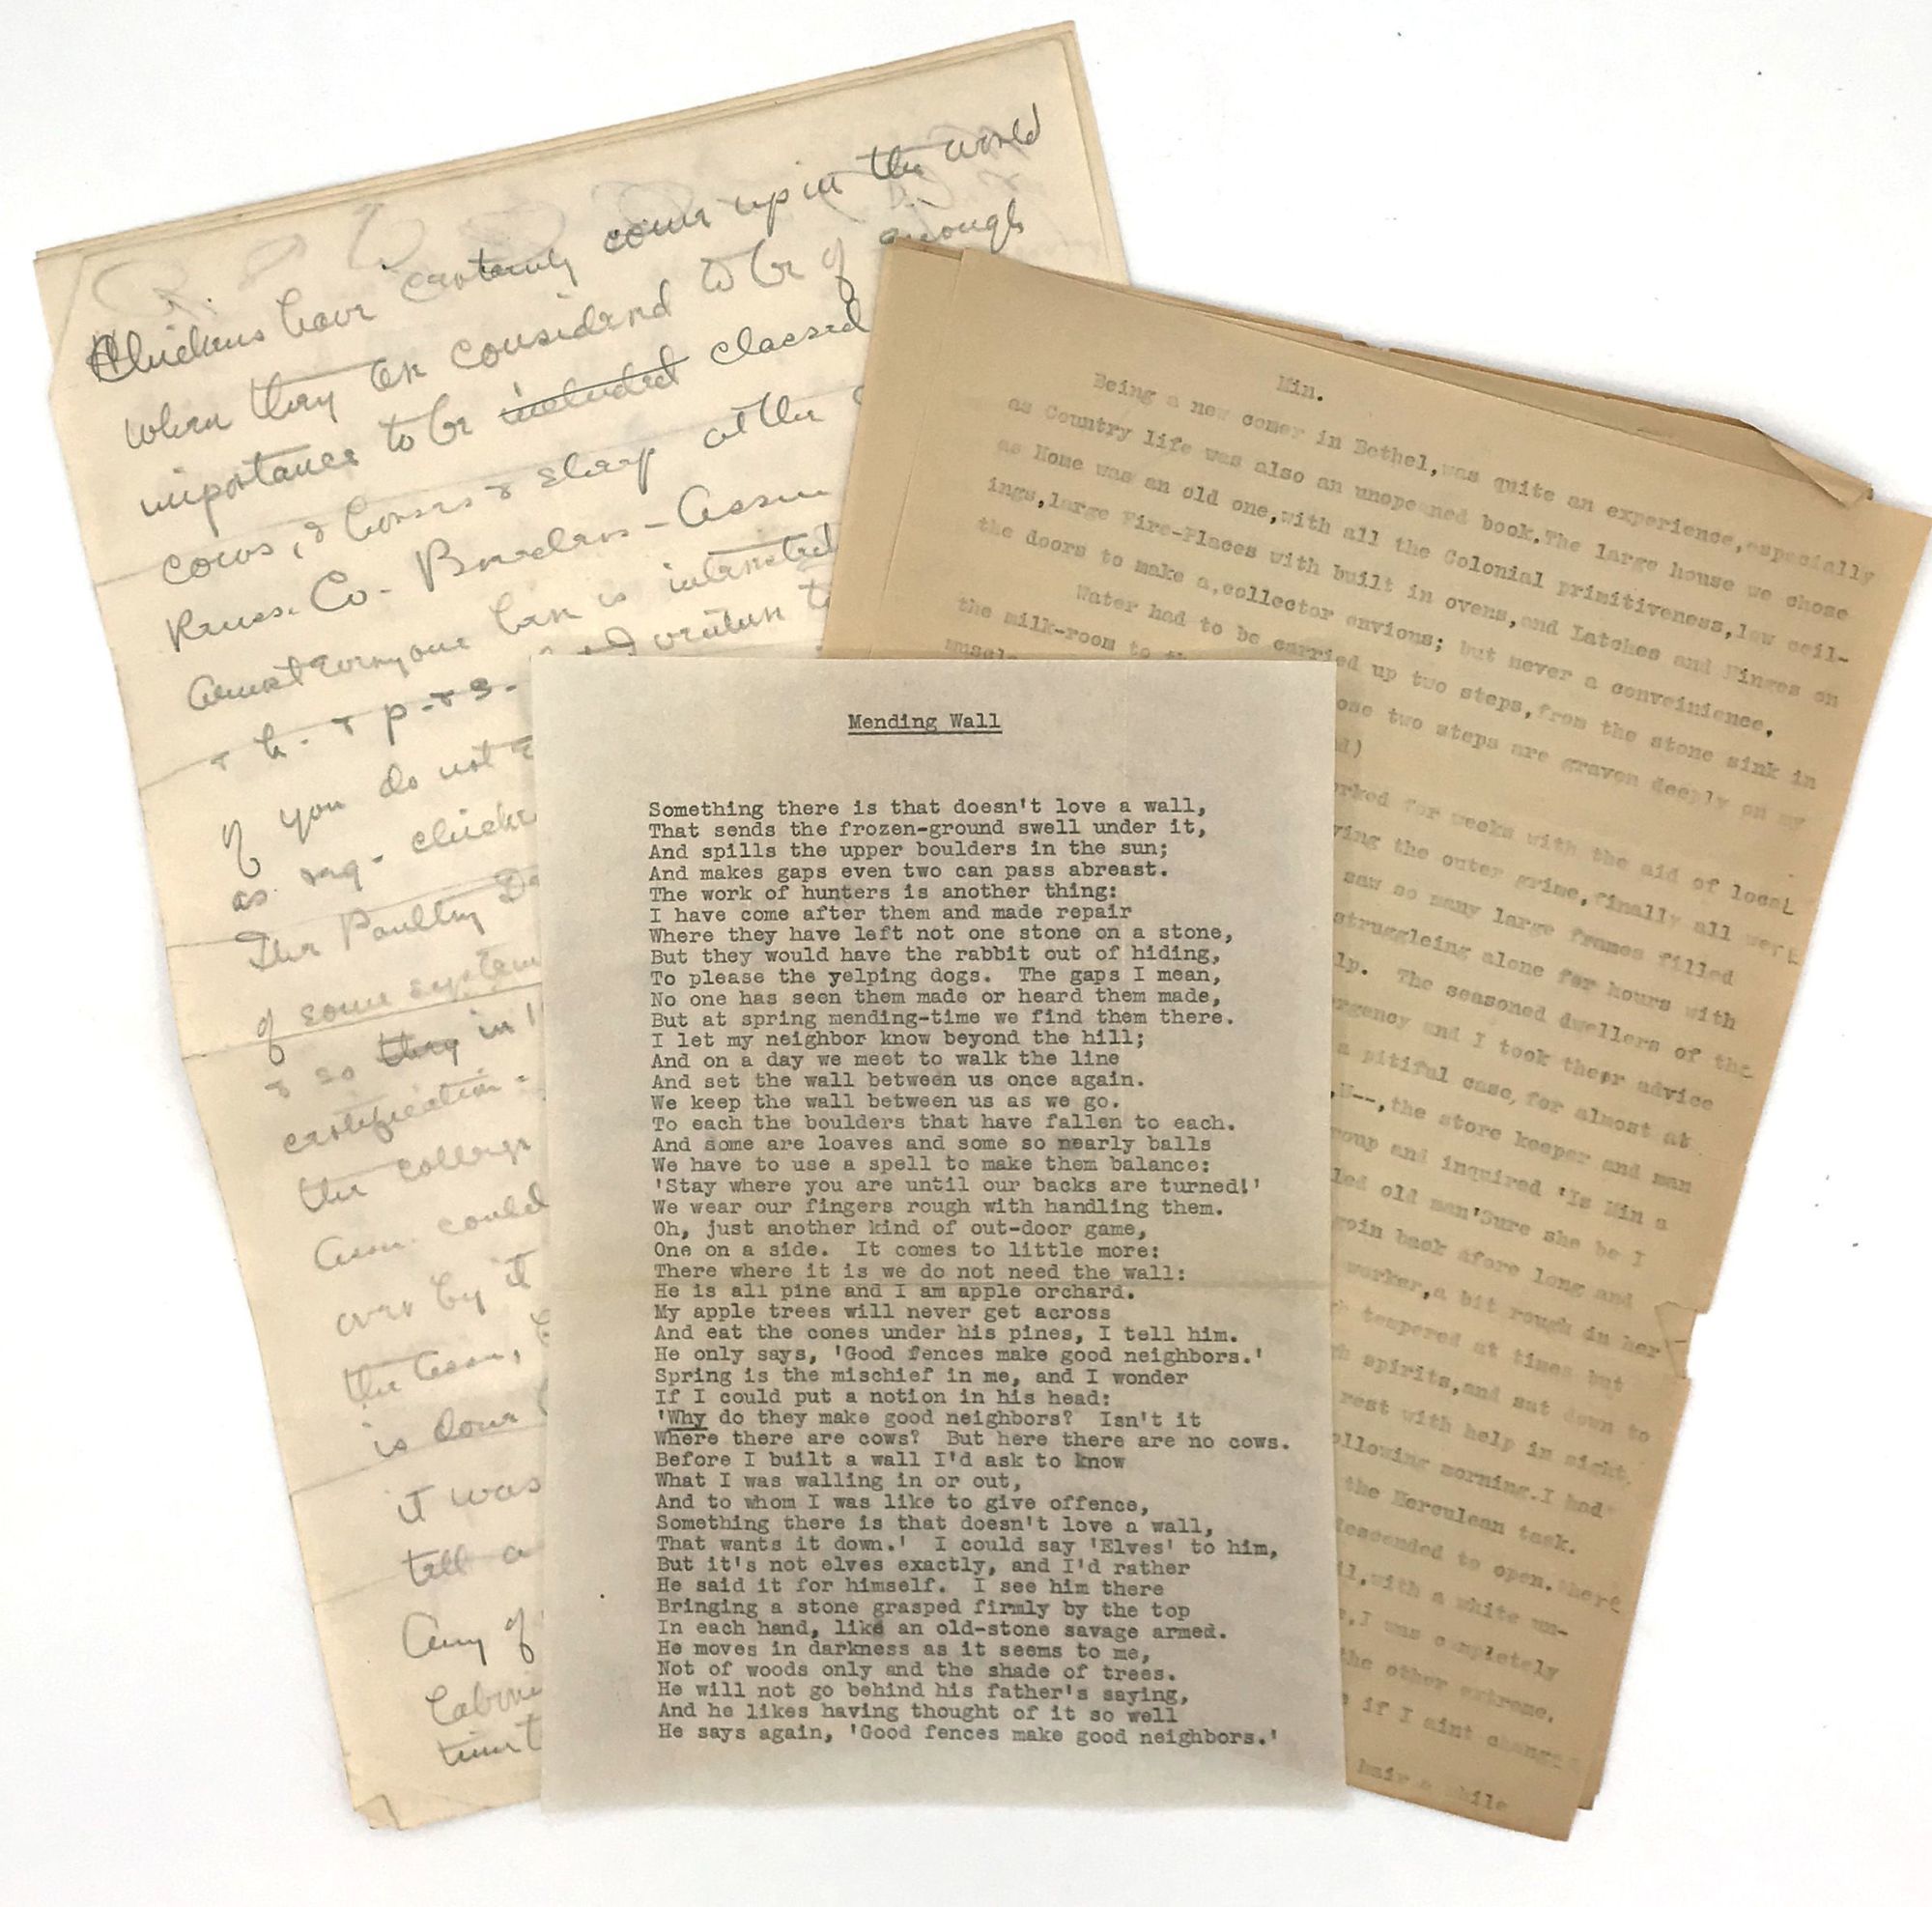 Chickens have certainly come up in the world
when they are considered to be of enough
importance to be included classed
cows, & horses & sheep at the
Renss. Co. Breeders - Assn
Almost everyone here is interested
& h. & p. & s.
if you do not
as reg. chicken
The Poultry De
of some system
& so they in
certification
the college
Assn. could
over by it
the team,
is done
it was
tell a
Any of
time t
Min.
Being a new comer in Bethel,was quite an experience,especially
as Country life was also an unopeaned book.The large house we chose
as Home was an old one,with all the Colonial primitiveness,low ceil-
ings,large Fire-Places with built in ovens,and Latches and Hinges on
the doors to make a,collector envions; but never a conveinience.
Water had to be carried up two steps,from the stone sink in
the milk-room to th
ose two steps are graven deeply on my
muscle
d)
rked for weeks with the aid of local
ving the outer grime,finally all were
saw so many large frames filled
struggleing alone for hours with
lp. The seasoned dwellers of the
rgency and I took theer advice
a pitiful case,for almost at
,H--,the store keeper and man
roup and inquired 'Is Min a
led old man'Sure she be I
goin back afore long and
worker,a bit rough in her
h tempered at times but
gh spirits,and sat down to
rest with help in sight,
ollowing morning.I had
the Herculean task.
descended to open.there
il,with a white un-
,I was completely
the other extreme.
if I aint change
hair a while
Mending Wall
Something there is that doesn't love a wall,
That sends the frozen-ground swell under it,
And spills the upper boulders in the sun;
And makes gaps even two can pass abreast.
The work of hunters is another thing:
I have come after them and made repair
Where they have left not one stone on a stone,
But they would have the rabbit out of hiding,
To please the yelping dogs.  The gaps I mean,
No one has seen them made or heard them made,
But at spring mending-time we find them there.
I let my neighbor know beyond the hill;
And on a day we meet to walk the line
And set the wall between us once again.
We keep the wall between us as we go.
To each the boulders that have fallen to each.
And some are loaves and some so nearly balls
We have to use a spell to make them balance:
'Stay where you are until our backs are turned!'
We wear our fingers rough with handling them.
Oh, just another kind of out-door game,
One on a side.  It comes to little more:
There where it is we do not need the wall:
He is all pine and I am apple orchard.
My apple trees will never get across
And eat the cones under his pines, I tell him.
He only says, 'Good fences make good neighbors.'
Spring is the mischief in me, and I wonder
If I could put a notion in his head:
'Why do they make good neighbors?  Isn't it
Where there are cows?  But here there are no cows.
Before I built a wall I'd ask to know
What I was walling in or out,
And to whom I was like to give offence,
Something there is that doesn't love a wall,
That wants it down.'  I could say 'Elves' to him,
But it's not elves exactly, and I'd rather
He said it for himself.  I see him there
Bringing a stone grasped firmly by the top
In each hand, like an old-stone savage armed.
He moves in darkness as it seems to me,
Not of woods only and the shade of trees.
He will not go behind his father's saying,
And he likes having thought of it so well
He says again, 'Good fences make good neighbors.'